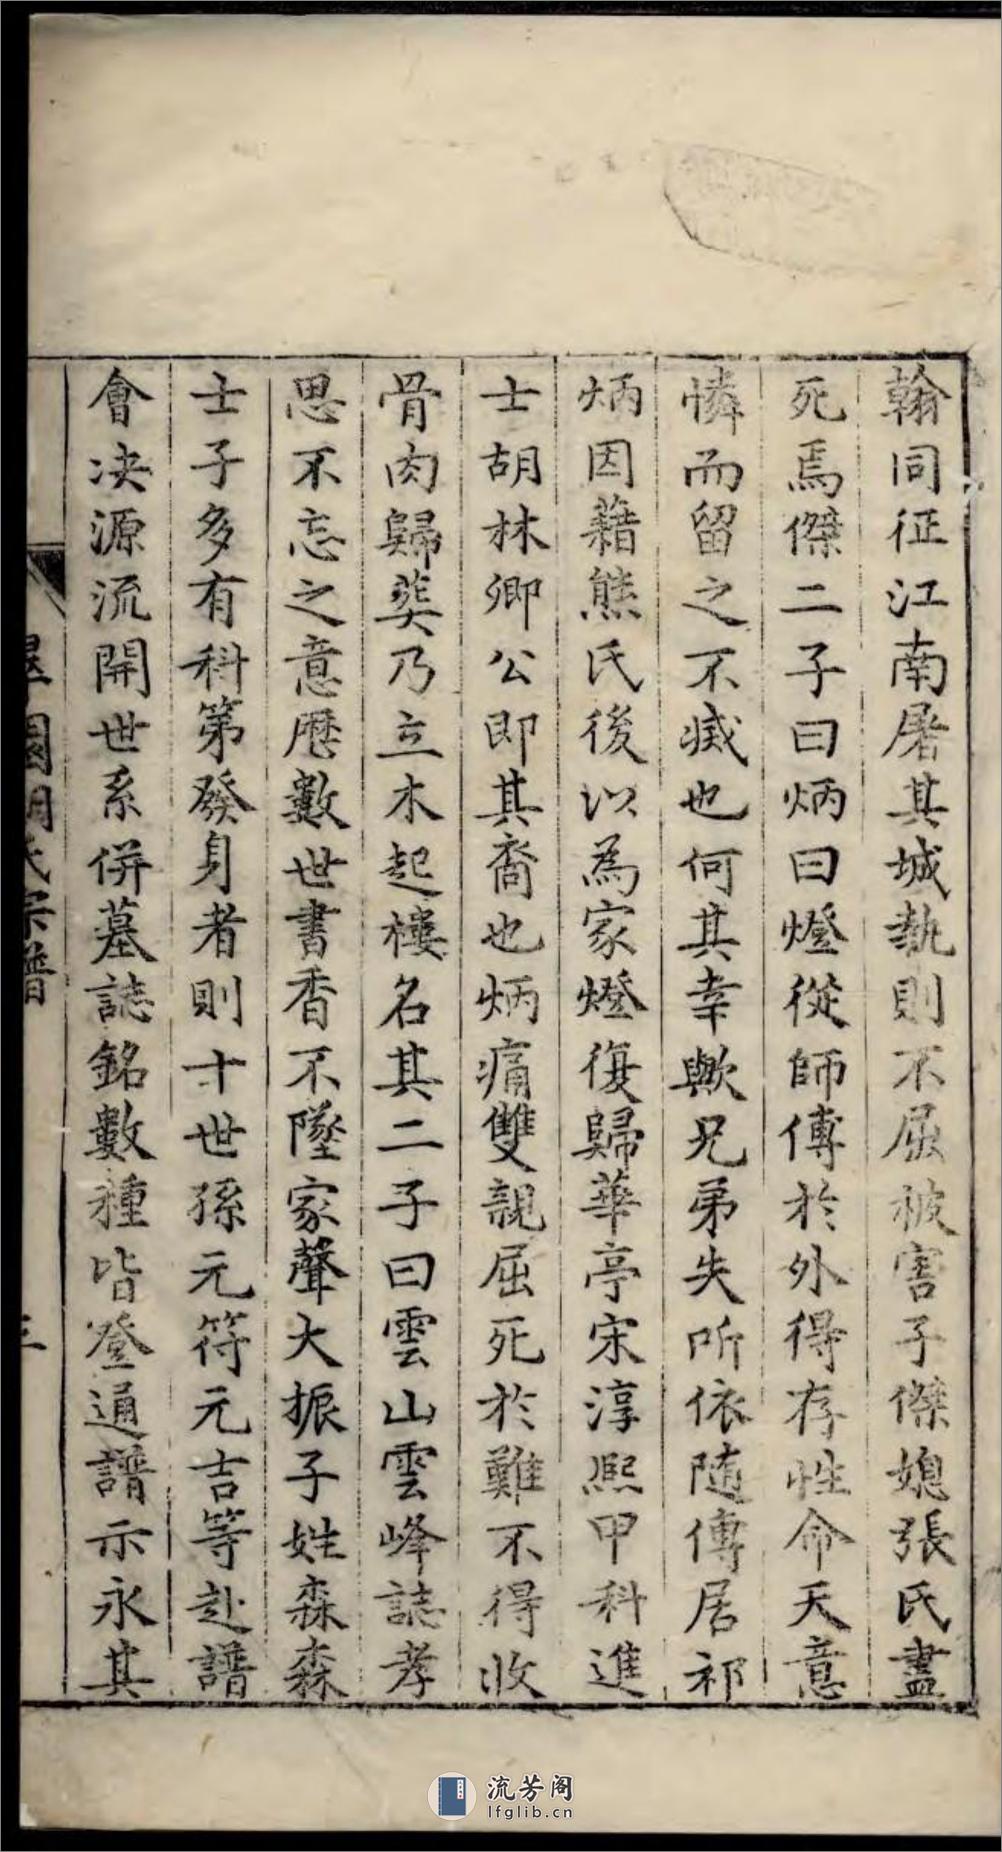 翰同征江南屠其城執則不屈被害子傑媳張氏盡
死焉傑二子曰炳曰燈從師傅於外得存性命天意
憐而留之不滅也何其幸歟兄弟失所依随傅居祁
炳因藉熊氏後以為家燈復歸華亭宋淳熙甲科進
士胡林卿公即其裔也炳痛雙親屈死於難不得收
骨肉歸葬乃立木起樓名其二子曰雲山雲峰誌孝
思不忘之意歷數世書香不墜家聲大振子姓森森
士子多有科第發身者則十世孫元符元吉等赴譜
會决源流開世系併墓誌銘數種皆登通譜示永其
園胡氏宗譜
三
流芳阁
lfglib.cn